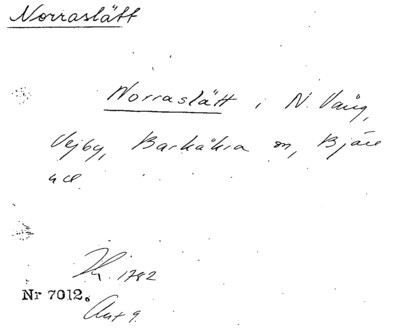 Norraslätt
Norraslätt i N. Vång,
Vejby, Barkåkra sn, Bjäre
1782
Nr 7012.